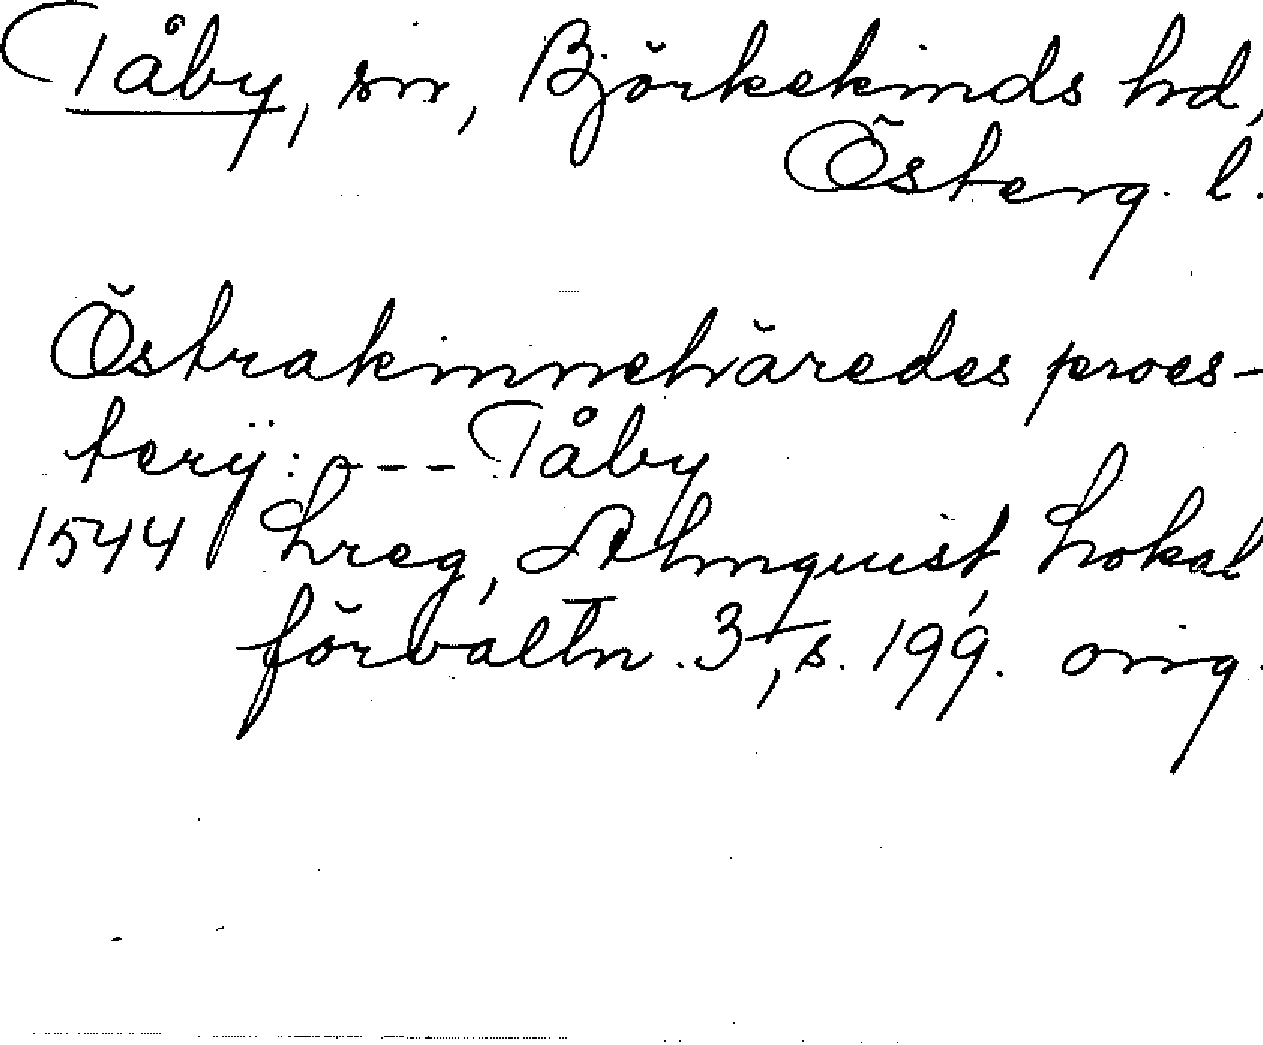 Tåby, sn, Björkekinds hd,
Österg. l.
Östrakinnehäredes proes-
terÿ: --- Tåby
1544 Lreg, Almquist, Lokal
förvaltn. 3, s. 199. orig.